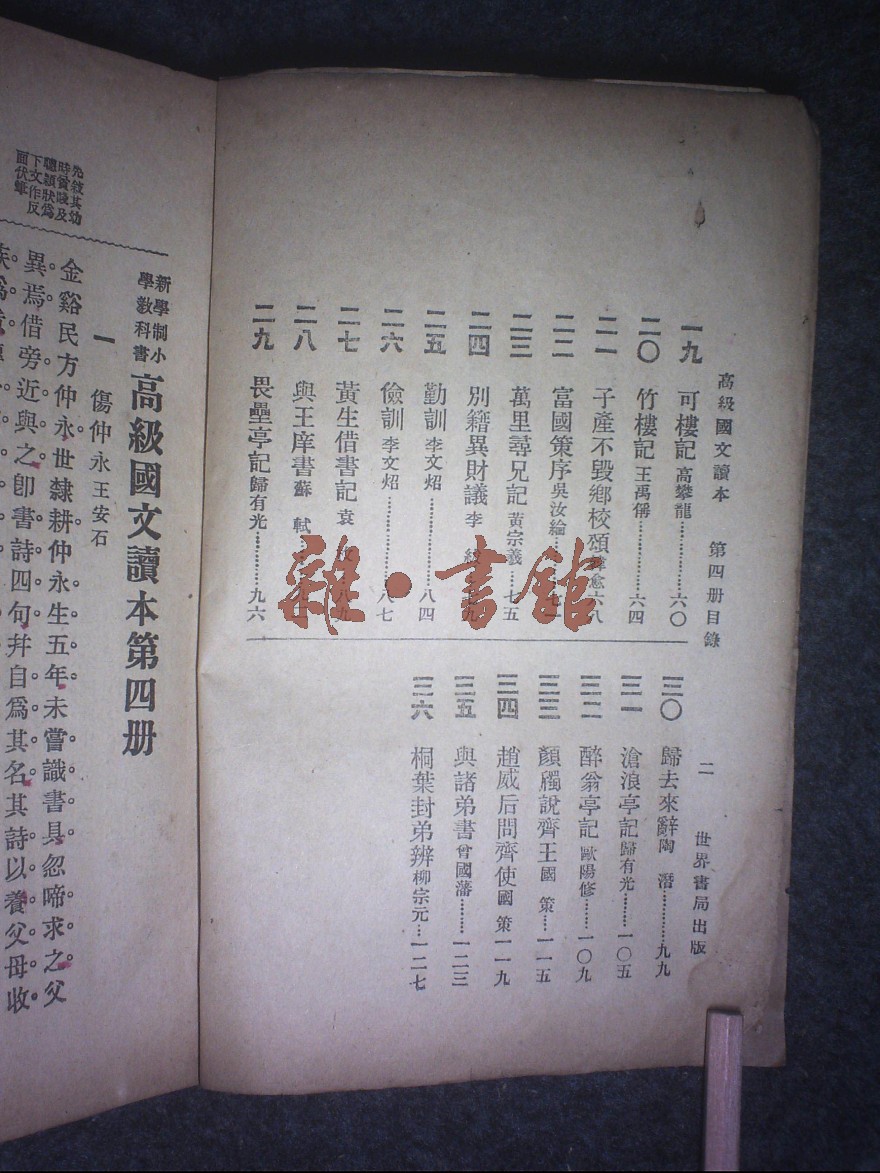 高級國文讀本　第四册目錄　二　世界書局出版
一九　可樓記　高攀龍……六〇
二〇　竹樓記　王禹偁……六四
二一　子產不毀鄉校頌　韓愈　六八
二二　富國策序　吳汝綸
二三　萬里尋兄記　黃宗羲……七五
二四　別籍異財議　李
二五　勤訓　李文炤……八四
二六　儉訓　李文炤……八七
二七　黃生借書記　袁
二八　與王庠書　蘇　軾
二九　畏壘亭記　歸有光……九六
三〇　歸去來辭　陶　潛……九九
三一　滄浪亭記　歸有光……一〇五
三二　醉翁亭記　歐陽修……一〇九
三三　顏斶說齊王　國　策……一一五
三四　趙威后問齊使　國　策　一一九
三五　與諸弟書　曾國藩……一二三
三六　桐葉封弟辨　柳宗元…一二七
雜·書館
先敘其幼
時資
聰穎狀爲
下文作反
面伏筆
新學制小
學教科書
高級國文讀本第四册
一　傷仲永　王安石
金谿民方仲永。世隸耕。仲永生五年。未嘗識書具。忽啼求之。父
異焉。借旁近與之。卽書詩四句。幷自爲其名。其詩以養父母收
族爲